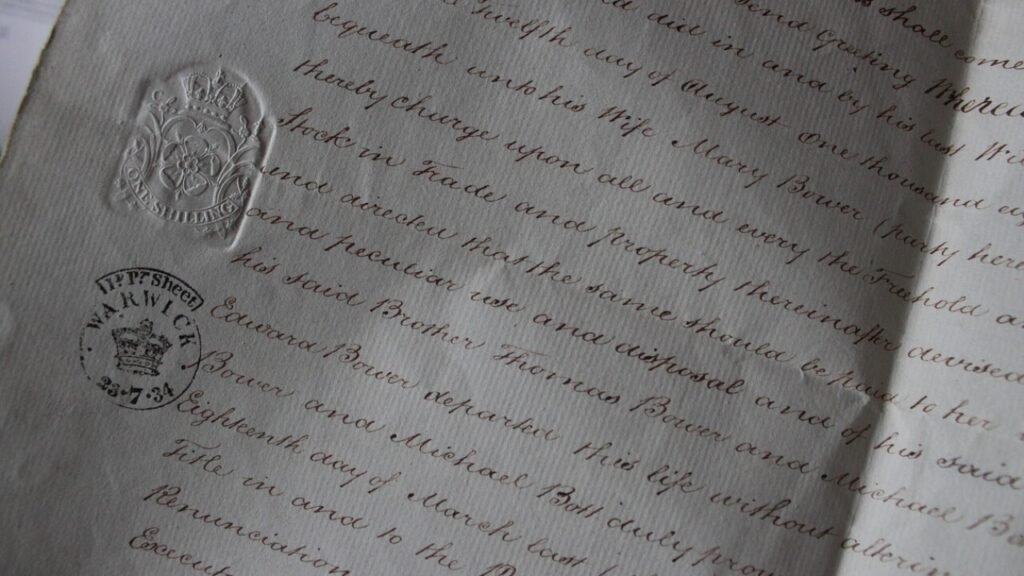 shall come
send Greeting Whereas
Twelfth day of August One thousand eig
did in and by his last Wil
bequeath unto his Wife Mary Bower (party here
thereby charge upon all and every the Freehold a
Stock in Trade and property thereinafter devised
and directed that the same should be paid to her
and peculiar use and disposal and of his said
his said Brother Thomas Bower and Michael Bo
Edward Bower departed this life without alterin
Bower and Michael Bott duly prov
Eighteenth day of March last
Title in and to the
Renunciation
Execut
ONE SHILLING
1d. Pr. Sheet
WARWICK
28·7·34